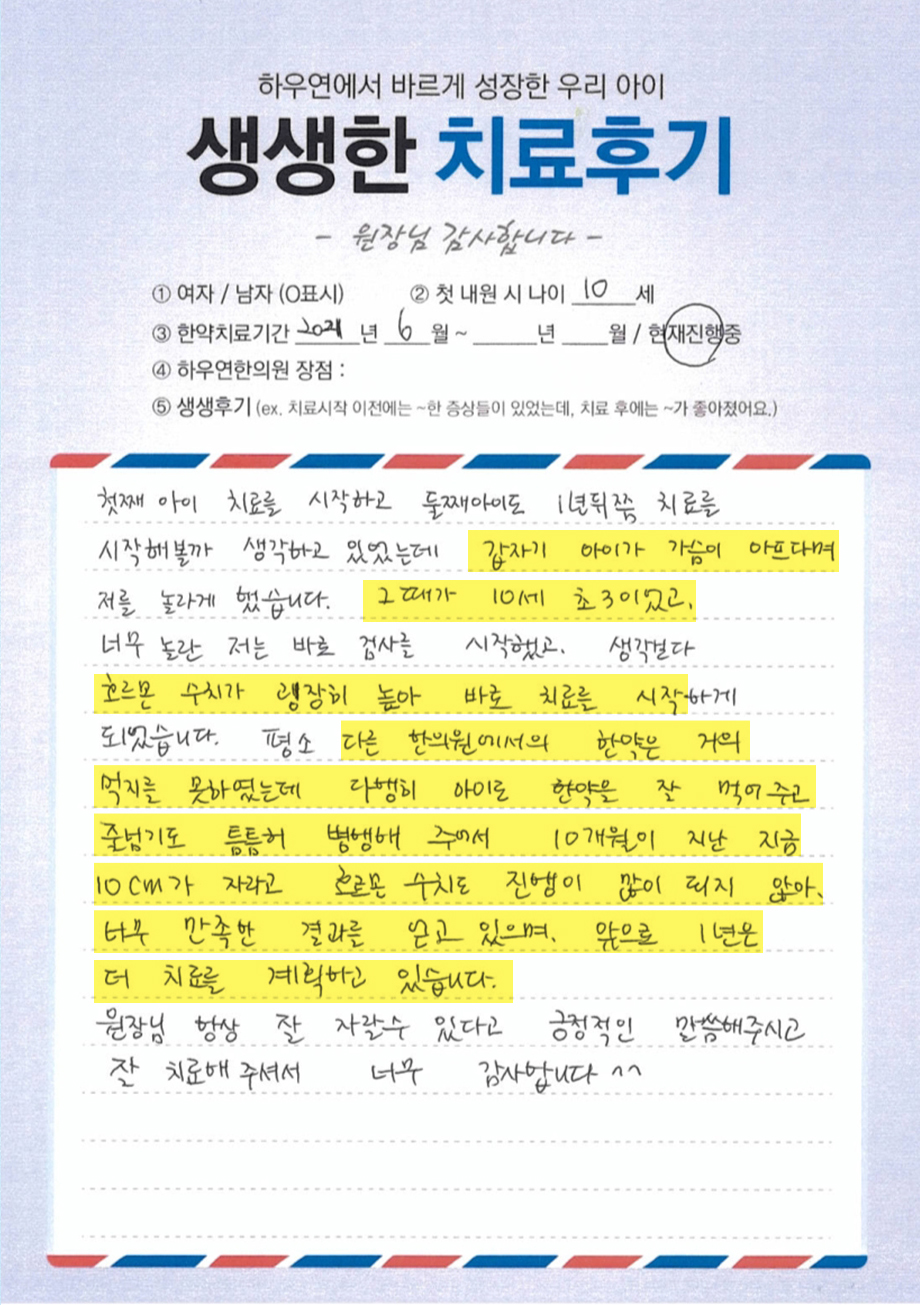 하우연에서 바르게 성장한 우리 아이
생생한 치료후기
- 원장님 감사합니다 -
① 여자 / 남자 (O표시) ② 첫 내원 시 나이 10 세
③ 한약치료기간 2021 년 6 월 ~ 년 월 / 현재진행중
④ 하우연한의원 장점 :
⑤ 생생후기 (ex. 치료시작 이전에는 ~한 증상들이 있었는데, 치료 후에는 ~가 좋아졌어요.)
첫째 아이 치료를 시작하고 둘째아이도 1년뒤쯤 치료를
시작해볼까 생각하고 있었는데 갑자기 아이가 가슴이 아프다며
저를 놀라게 했습니다. 그때가 10세 초3이었고,
너무 놀란 저는 바로 검사를 시작했고. 생각보다
호르몬 수치가 굉장히 높아 바로 치료를 시작하게
되었습니다. 평소 다른 한의원에서의 한약은 거의
먹지를 못하였는데 다행히 아이도 한약을 잘 먹어주고
줄넘기도 틈틈히 병행해 주어서 10개월이 지난 지금
10cm가 자라고 호르몬 수치도 진행이 많이 되지 않아,
너무 만족한 결과를 얻고 있으며, 앞으로 1년은
더 치료를 계획하고 있습니다.
원장님 항상 잘 자랄수 있다고 긍정적인 말씀해주시고
잘 치료해 주셔서 너무 감사합니다 ^^